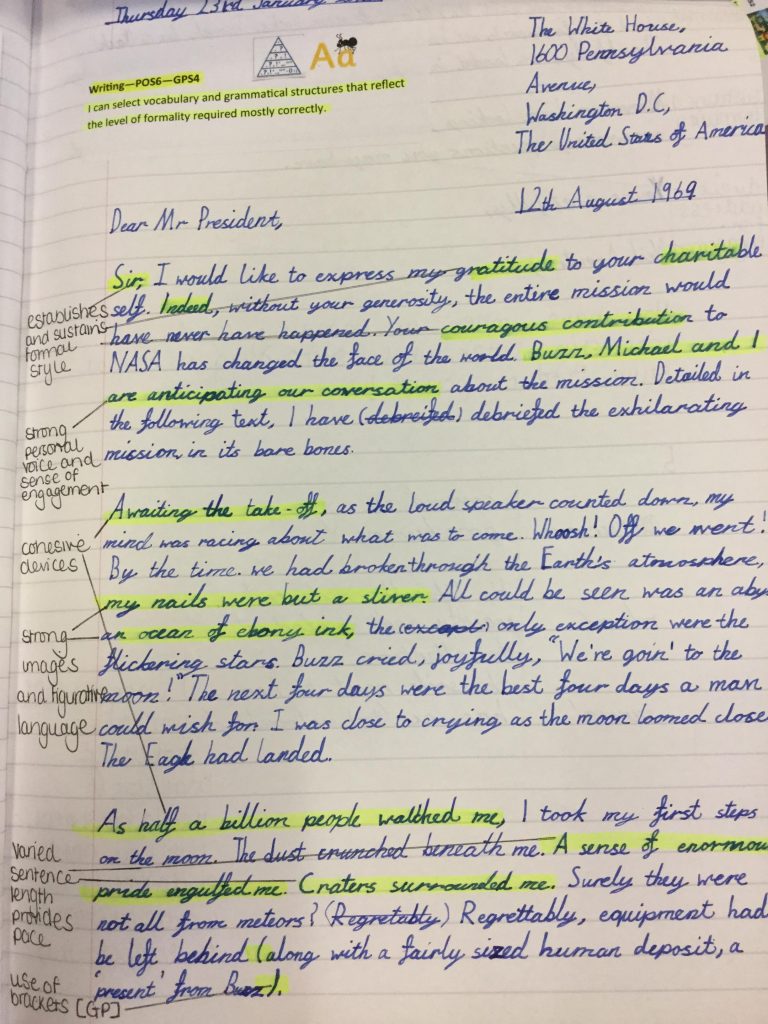 Thursday 23rd January
The White House,
1600 Pennsylvania
Avenue,
Washington D.C,
The United States of America
Aa
Writing—POS6—GPS4
I can select vocabulary and grammatical structures that reflect
the level of formality required mostly correctly.
12th August 1969
Dear Mr President,
Sir, I would like to express my gratitude to your charitable
self. Indeed, without your generosity, the entire mission would
have never have happened. Your couragous contribution to
NASA has changed the face of the world. Buzz, Michael and I
are anticipating our coversation about the mission. Detailed in
the following text, I have (debreifed) debriefed the exhilarating
mission, in its bare bones.
establishes
and sustains
formal
style
strong
personal
voice and
sense of
engagement
Awaiting the take-off, as the loud speaker counted down, my
mind was racing about what was to come. Whoosh! Off we went!
By the time. we had brokenthrough the Earth's atmosphere,
my nails were but a sliver. All could be seen was an aby
an ocean of ebony ink, the (except) only exception were the
flickering stars. Buzz cried, joyfully, "We're goin' to the
moon!" The next four days were the best four days a man
could wish for. I was close to crying as the moon loomed close
The Eagle had landed.
cohesive
devices
strong
images
and figurative
language
As half a billion people watched me, I took my first steps
on the moon. The dust crunched beneath me. A sense of enormou
pride engulfed me. Craters surrounded me. Surely they were
not all from meteors? (Regretably) Regrettably, equipment had
be left behind (along with a fairly sized human deposit, a
'present' from Buzz).
varied
sentence
length
provides
pace
use of
brackets [GP]